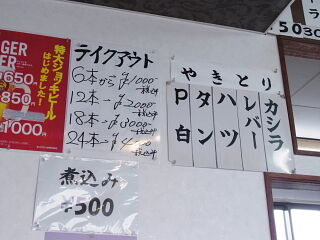 特大ジョッキビール
はじめました!
GER
ER
650
850
1000円
テイクアウト
6本から¥1000- 税込み
12本→¥2000- 税込み
18本→¥3000- 税込み
24本→¥4 税込み
やきとり
カシラ
レバー
ハツ
タン
P白
煮込み
¥500
5030